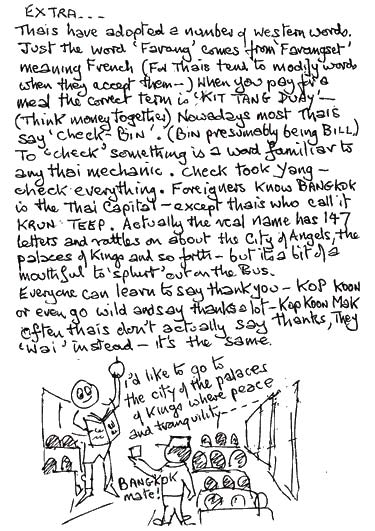 EXTRA---
Thais have adopted a number of western words.
Just the word 'Farang' comes from 'Farangset'
meaning French (For Thais tend to modify words
when they accept them-) When you pay for a
meal the correct term is 'KIT TANG DUAY'-
(Think money together) Nowadays most Thais
say 'Check-Bin'. (Bin presumably being BILL)
To "check" something is a word familiar to
any thai mechanic. Check took yang-
check everything. Foreigners know BANGKOK
is the Thai Capital - except thais who call it
KRUN TEEP. Actually the real name has 147
letters and rattles on about the City of Angels, the
palaces of Kings and so forth - but its a bit of a
mouthful to 'splurt' out on the Bus.
Everyone can learn to say thank you - KOP KOON
or even go wild and say thanks a lot - Kop Koon Mak
Often thais don't actually say thanks, They
'Wai' instead - it's the same.
i'd like to go to
the city of the palaces
of kings where peace
and tranquility---
BANGKOK
mate!